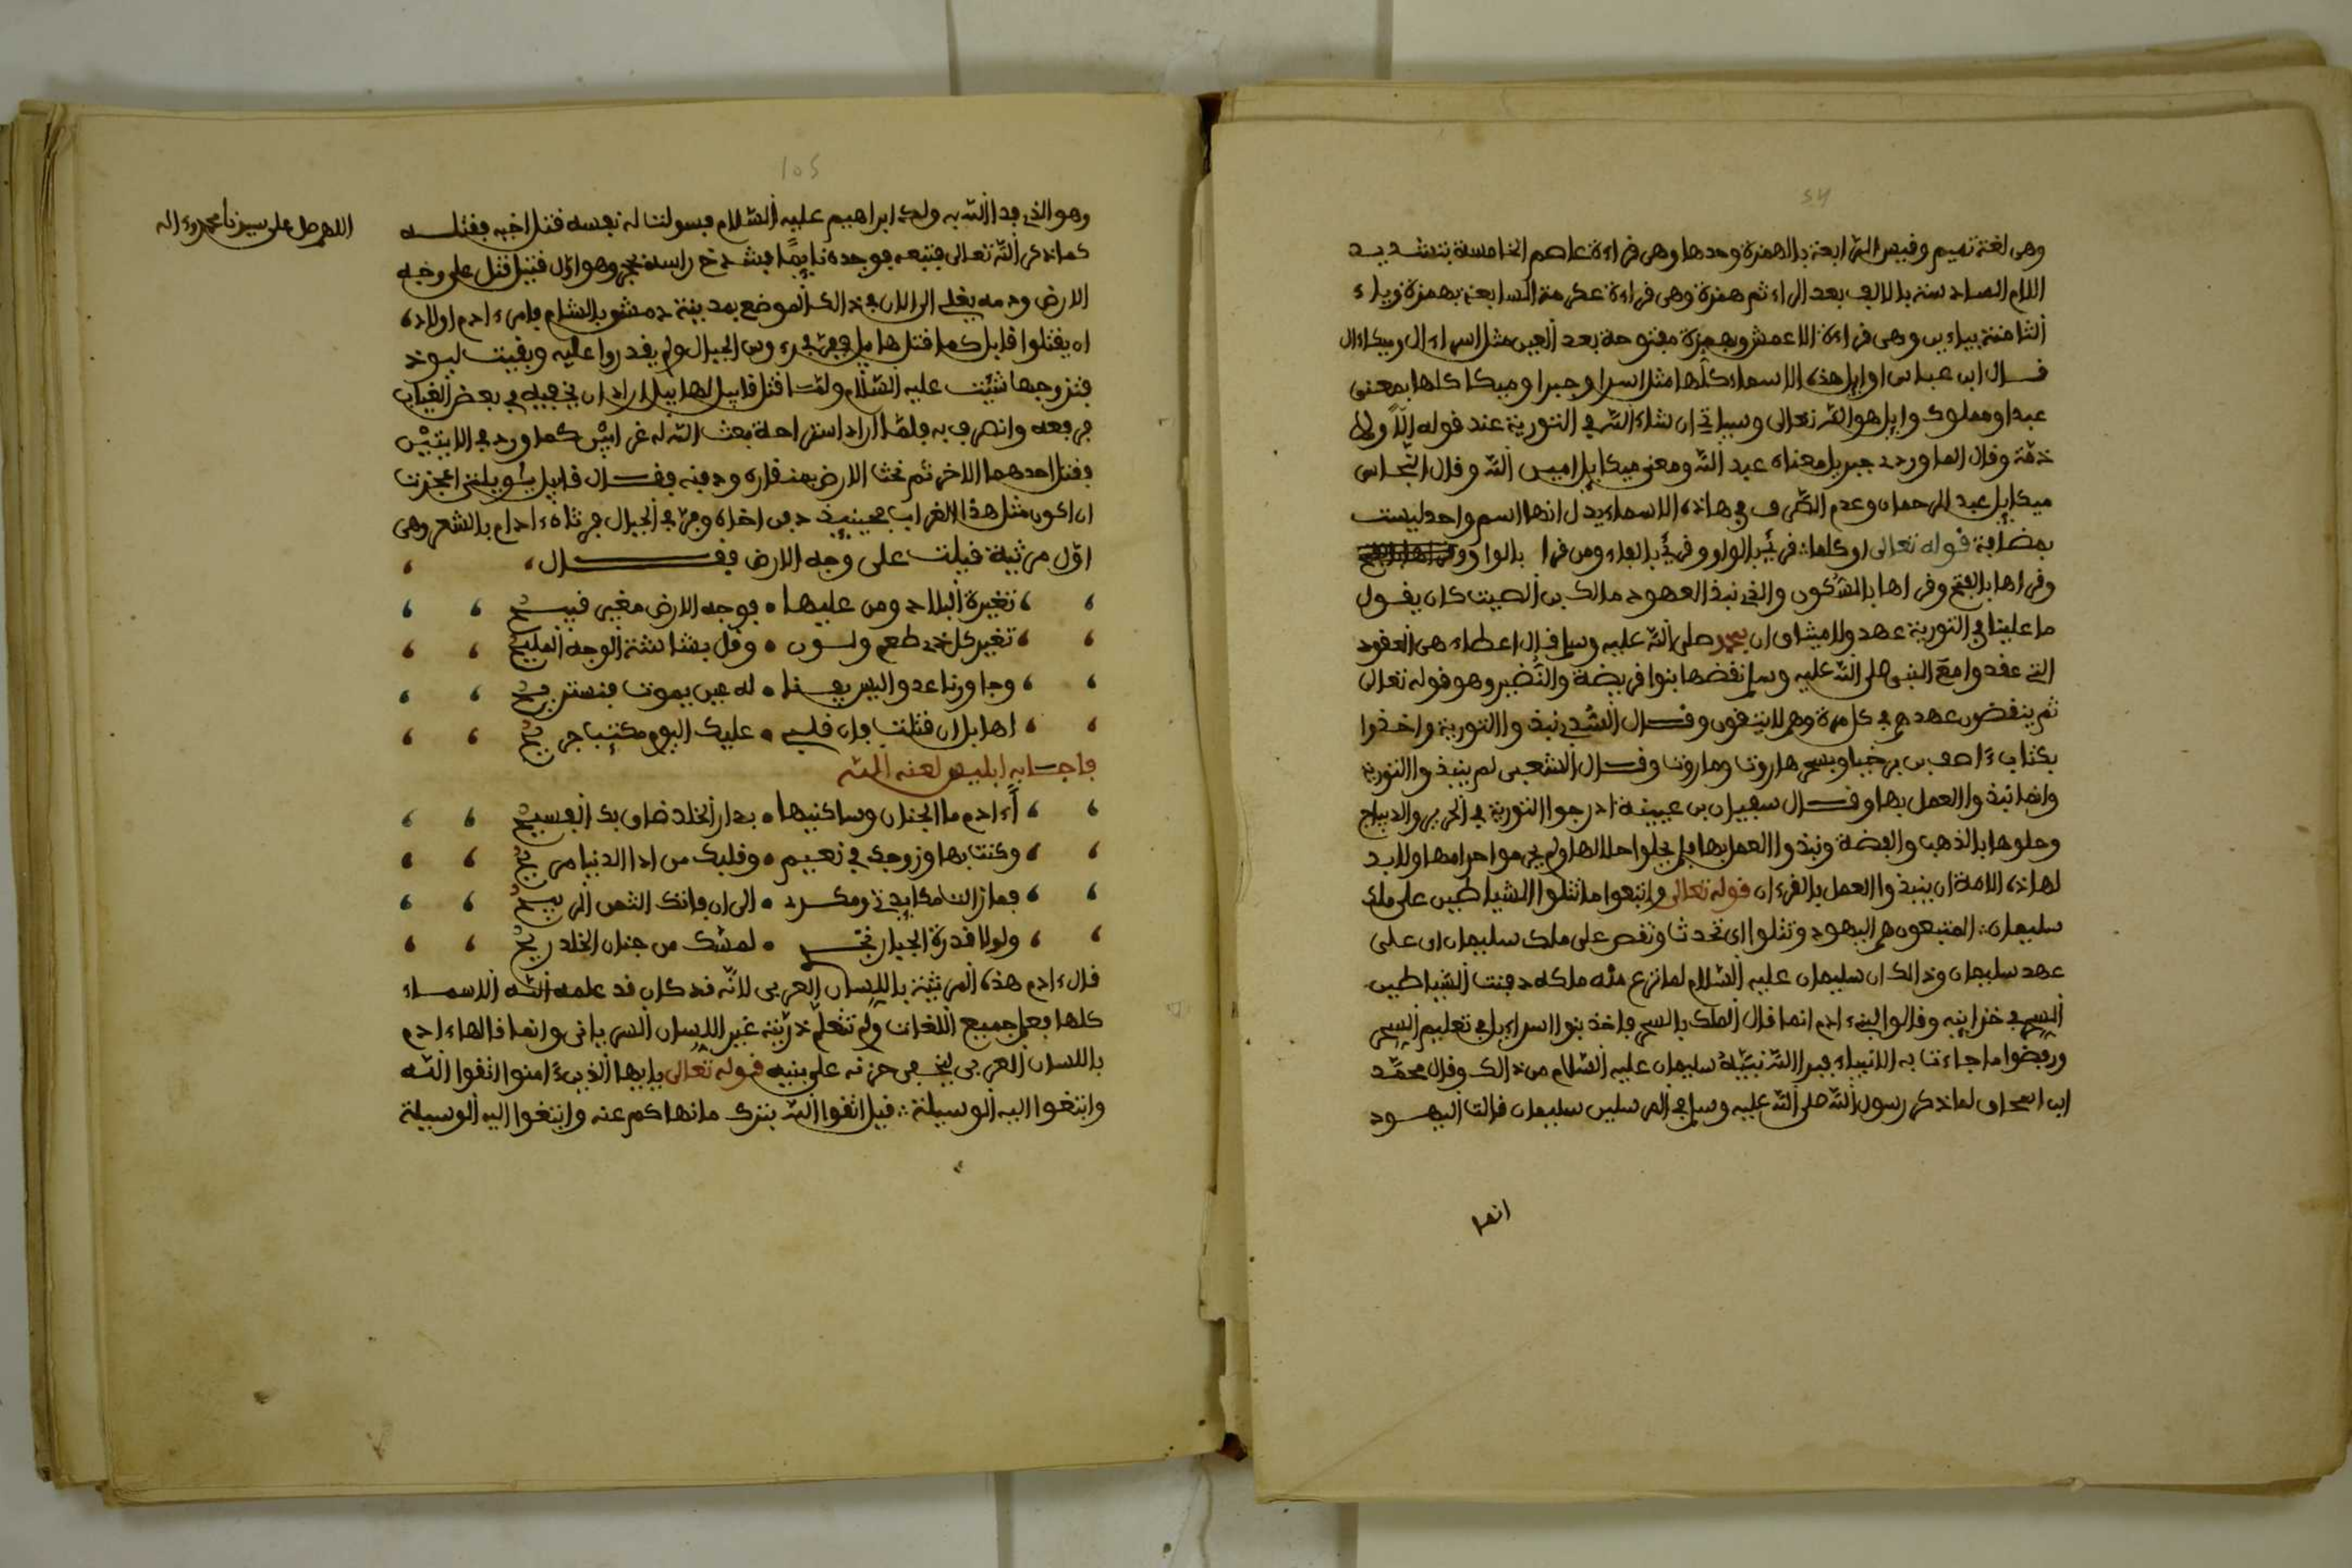 54
وهى لغة تميم وقيس الرابعة بالهمزة وحدها وهى قراءة عاصم الخامسة بتشديد
اللام السادسة بالالف بعد الراء ثم همزة وهى قراءة عكرمة السابعة بهمزة وياء
الثامنة بياءين وهى قراءة الاعمش وبهمزة مفتوحة بعد العين مثل اسراءال وميكاءال
قال ابن عباس اوايل هذه الاسماء كلها مثل اسرا وجبرا وميكا كلها بمعنى
عبد او مملوك وايل هو الله تعالى وسياتى ان شاء الله فى التورية عند قوله الّاً ولا
ذمّة وقال الماوردى جبريل معناه عبد الله ومعنى ميكايل امين الله وقال النحاس
ميكايل عبد الرحمان وعدم الصّرف فى هاذه الاسماء يدل انها اسم واحد ليست
بمضافة قوله تعالى او كلما: قرئ بالواو وقرئ بالفاء ومن قرا بالواو
وقراها بالفتح وقراها بالسّكون والذى نبذ العهود مالك بن الصيت كان يقول
ما علينا فى التورية عهد ولا ميثاق ان محمد صلى الله عليه وسلم قال اعطاء هى العقود
التى عقدوا مع النبى صلى الله عليه وسلم نقضها بنوا قريضة والنّضير وهو قوله تعالى
ثم ينقضون عهدهم فى كل مرة وهم لا يتقون وقال السّدى نبذوا التورية واخذوا
بكتاب ءاصف بن برخيا وبسحر هاروت وماروت وقال الشعبى لم ينبذوا التورية
وانما نبذوا العمل بها وقال سفيان بن عيينة ادرجوا التورية فى الحرير والديباج
وحلوها بالذهب والفضة ونبذوا العمل بها فلم يحلوا حلالها ولم يحرموا حرامها ولا بد
لهاذه الامة ان ينبذوا العمل بالقرءان قوله تعالى واتبعوا ما تتلوا الشياطين على ملك
سليمان: المتبعون هم اليهود وتتلوا اى تحدث وتقص على ملك سليمان اى على
عهد سليمان وذالك ان سليمان عليه السّلام لما نزع منه ملكه دفنت الشياطين
السحر فى خزاينه وقالوا لبنى ءادم انما قال الملك بالسحر فاخذ بنوا اسراءيل فى تعليم السحر
ورفضوا ما جاءت به الانبياء فبرا الله نبيّهُ سليمان عليه السّلام من ذالك وقال محمّد
ابن اسحاق لما ذكر رسول الله صلى الله عليه وسلم فى المرسلين سليمان قالت اليهود
انما
105
اللهم صل على سيدنا محمد وءاله
وهو الذى فدا الله به ولد ابراهيم عليه السّلام فسولت له نفسه قتل اخيه فقتله
كما ذكر الله تعالى فتبعه فوجده نايمًا فشدخ راسه بحجر وهو اول قتيل قتل على وجه
الارض ودمه يغلى الى الان فى ذالك الموضع بمدينة دمشق بالشام فامر ءادم اولاده
ان يقتلوا قابل كما قتل هابيل ففرّ فى رءوس الجبال ولم يقدروا عليه وبقيت ليوذ
فتزوجها شيّت عليه السّلام ولمّا قتل قابيل لهابيل اراد ان يخفيه فى بعض الغياب
فرفعه وانصرف به فلمّا اراد استراحة بعث الله له غرابيْن كما ورد فى الايتيْن
فقتل احدهما الاخر ثم نحث الارض بمنقاره ودفنه فقال قابيل يٰويلتى اعجزت
ان اكون مثل هذا الغراب فحينيذ دفن اخاه وفرّ فى الجبال فرثاه ءادام بالشعر وهى
اوّل مرثية قيلت على وجه الارض فقال،
، تغيرة البلاد ومن عليها • فوجه الارض مغبر قبيح
، تغير كل ذى طعم ولون • وقل بشاشة الوجه المليح
، وجاورنا عدو اليس يفنا • له عين يموت فنستريح
، اهابل ان قتلت فان قلبى • عليك اليوم مكتئبا جريح
فاجابه ابليس لعنه الله
، أءادم ما الجنان وساكنيها • بدار الخلد ضاق بك الفسيح
، وكنت بها وزوجك فى نعيم • وقلبك من اذا الدنيا مريح
، فما زالت مكايدتى ومكرى • الى ان فاتك الثمن الربيح
، ولولا قدرة الجبار نحّى • لمسّك من جنان الخلد ريح
قال ءادم هذه المرثية باللسان العربى لانّه قد كان قد علمه الله الاسماء
كلها فعلم جميع اللغات ولم تتعلّم ذرّيّته غير اللسان السريانى وانما قالها ءادم
باللسان العربى ليخفى حزنه على بنيه قوله تعالى يايها الذين ءامنوا اتقوا الله
وابتغوا اليه الوسيلة: قيل اتقوا الله بترك ما نهاكم عنه وابتغوا اليه الوسيلة